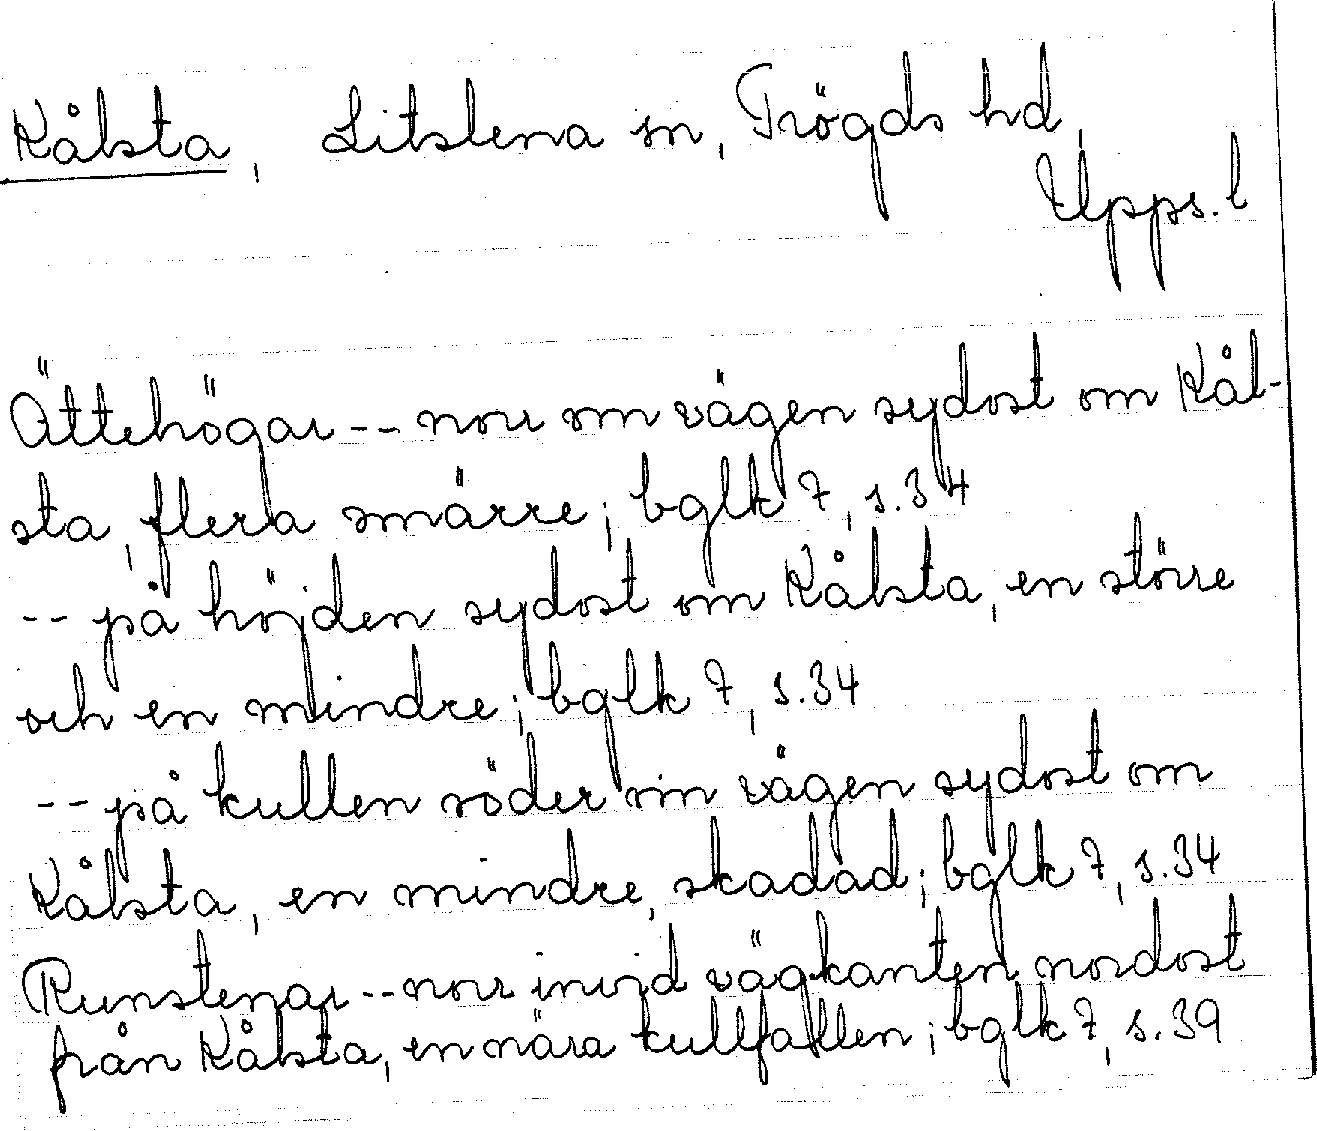 Kålsta, Litslena sn, Trögds hd,
Upps. l
Ättehögar -- norr om vägen sydost om Kål-
sta, flera smärre; bglk 7, s. 34
-- på höjden sydost om Kålsta, en större
och en mindre; bglk 7, s. 34
-- på kullen söder om vägen sydost om
Kålsta, en mindre, skadad; bglk 7, s. 34
Runstenar -- norr invid vägkanten nordost
från Kålsta, en nära kullfallen; bglk 7, s. 39